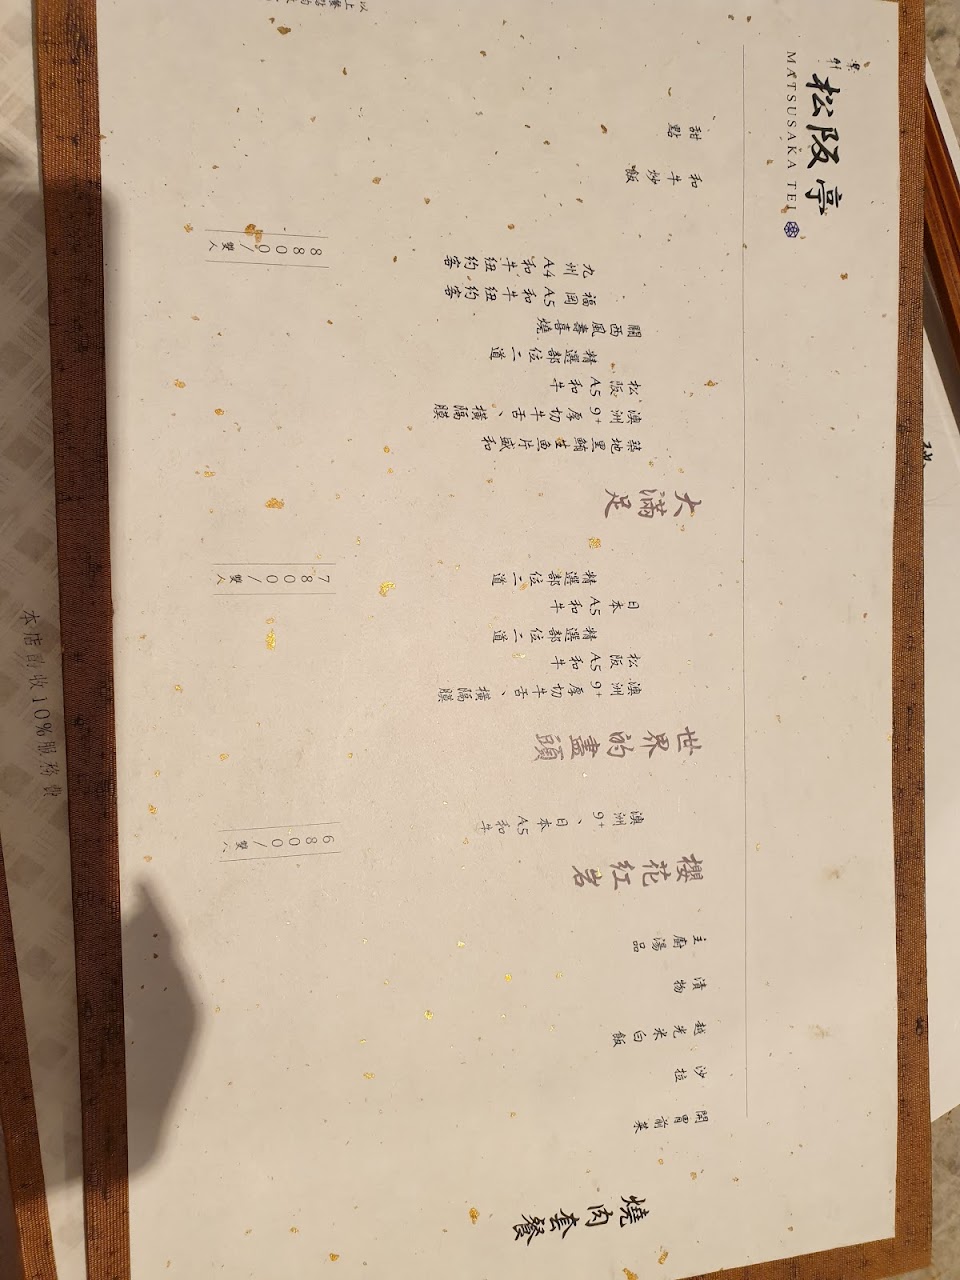 燒肉套餐
開胃前菜
沙拉
越光米白飯
漬物
主廚湯品
櫻花紅岩
澳洲9+、日本A5和牛
6800/雙人
世界的盡頭
澳洲9+厚切牛舌、橫隔膜
松阪A5和牛
精選部位二道
日本A5和牛
精選部位二道
7800/雙人
大滿足
築地黑鮪生魚片盛和
澳洲9+厚切牛舌、橫隔膜
松阪A5和牛
精選部位二道
關西風壽喜燒
福岡A5和牛紐約客
九州A4和牛紐約客
8800/雙人
和牛炒飯
甜點
松阪亭
MATSUSAKA TEI
以上
本店酌收10%服務費